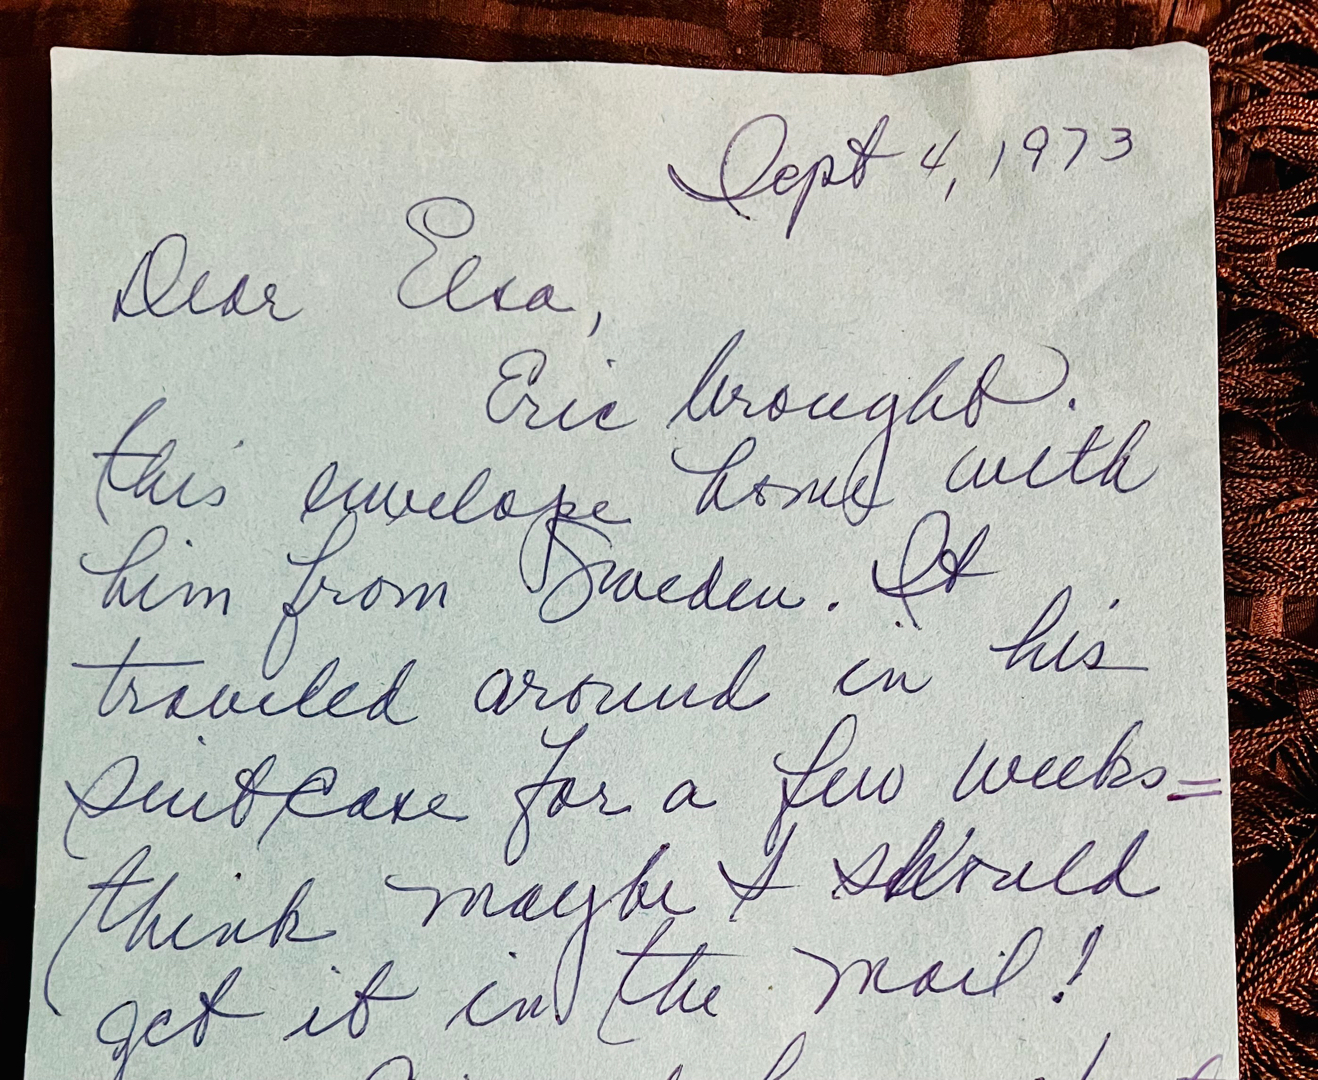 Sept 4, 1973
Dear Elsa,
Eric brought
this envelope home with
him from Sweden. It
traveled around in his
suitcase for a few weeks =
think maybe I should
get it in the mail!